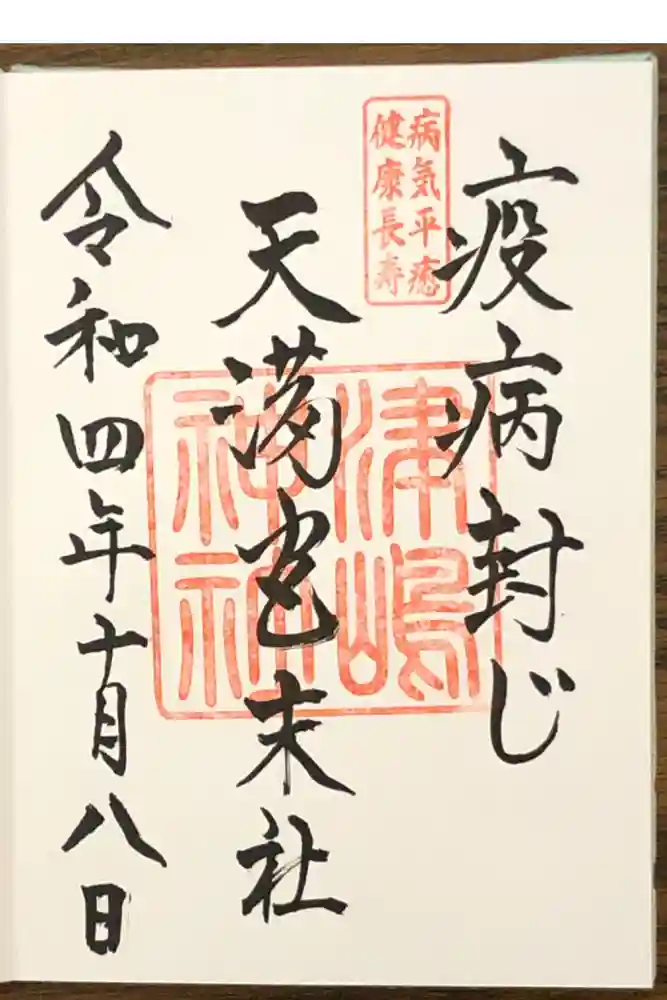 疫病封じ
病気平癒
健康長寿
天満宮末社
津嶋
神社
令和四年十月八日